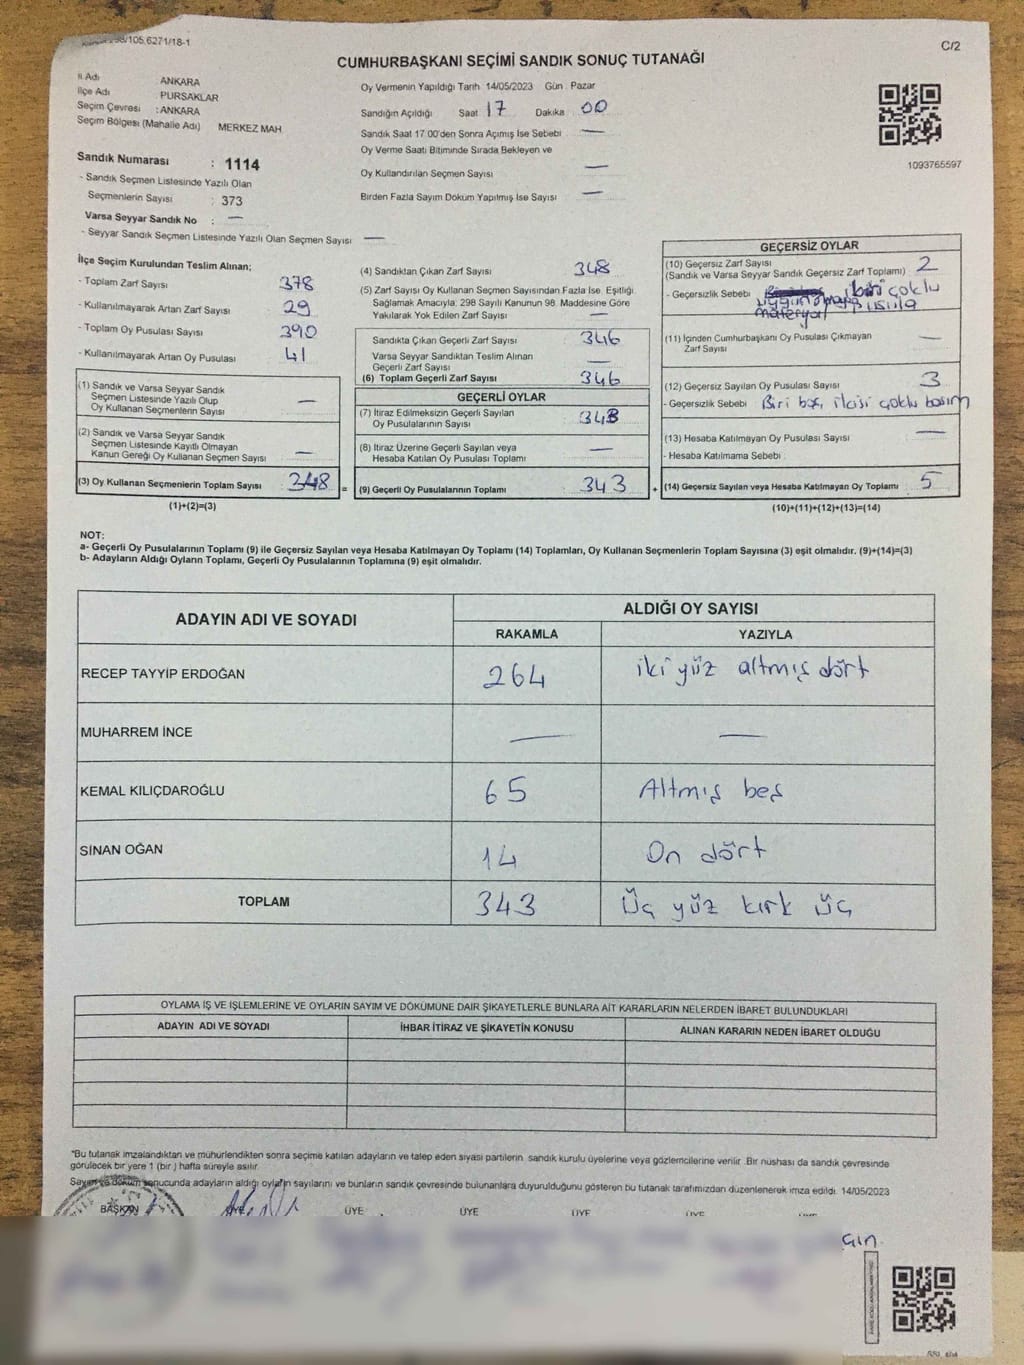 105.6271/18-1
C/2
CUMHURBAŞKANI SEÇİMİ SANDIK SONUÇ TUTANAĞI
İl Adı : ANKARA
İlçe Adı : PURSAKLAR
Seçim Çevresi : ANKARA
Seçim Bölgesi (Mahalle Adı) MERKEZ MAH
Sandık Numarası : 1114
- Sandık Seçmen Listesinde Yazılı Olan
Seçmenlerin Sayısı : 373
Varsa Seyyar Sandık No : —
- Seyyar Sandık Seçmen Listesinde Yazılı Olan Seçmen Sayısı —
Oy Vermenin Yapıldığı Tarih 14/05/2023 Gün Pazar
Sandığın Açıldığı Saat 17 Dakika 00
Sandık Saat 17.00'den Sonra Açımış İse Sebebi —
Oy Verme Saati Bitiminde Sırada Bekleyen ve
Oy Kullandırılan Seçmen Sayısı —
Birden Fazla Sayım Döküm Yapılmış İse Sayısı —
1093765597
İlçe Seçim Kurulundan Teslim Alınan;
- Toplam Zarf Sayısı 378
- Kullanılmayarak Artan Zarf Sayısı 29
- Toplam Oy Pusulası Sayısı 390
- Kullanılmayarak Artan Oy Pusulası 41
(1) Sandık ve Varsa Seyyar Sandık
Seçmen Listesinde Yazılı Olup
Oy Kullanan Seçmenlerin Sayısı —
(2) Sandık ve Varsa Seyyar Sandık
Seçmen Listesinde Kayıtlı Olmayan
Kanun Gereği Oy Kullanan Seçmen Sayısı —
(3) Oy Kullanan Seçmenlerin Toplam Sayısı 348 =
(1)+(2)=(3)
(4) Sandıktan Çıkan Zarf Sayısı 348
(5) Zarf Sayısı Oy Kullanan Seçmen Sayısından Fazla İse, Eşitliği
Sağlamak Amacıyla; 298 Sayılı Kanunun 98. Maddesine Göre
Yakılarak Yok Edilen Zarf Sayısı —
Sandıkta Çıkan Geçerli Zarf Sayısı 346
Varsa Seyyar Sandıktan Teslim Alınan
Geçerli Zarf Sayısı —
(6) Toplam Geçerli Zarf Sayısı 346
GEÇERLİ OYLAR
(7) İtiraz Edilmeksizin Geçerli Sayılan
Oy Pusulalarının Sayısı 343
(8) İtiraz Üzerine Geçerli Sayılan veya
Hesaba Katılan Oy Pusulası Toplamı —
(9) Geçerli Oy Pusulalarının Toplamı 343 +
GEÇERSİZ OYLAR
(10) Geçersiz Zarf Sayısı
(Sandık ve Varsa Seyyar Sandık Geçersiz Zarf Toplamı) 2
- Geçersizlik Sebebi biri çoklu
uygun olmayan
materyal
(11) İçinden Cumhurbaşkanı Oy Pusulası Çıkmayan
Zarf Sayısı —
(12) Geçersiz Sayılan Oy Pusulası Sayısı 3
- Geçersizlik Sebebi Biri boş, ikisi çoklu basım
(13) Hesaba Katılmayan Oy Pusulası Sayısı —
- Hesaba Katılmama Sebebi
(14) Geçersiz Sayılan veya Hesaba Katılmayan Oy Toplamı 5
(10)+(11)+(12)+(13)=(14)
NOT:
a- Geçerli Oy Pusulalarının Toplamı (9) ile Geçersiz Sayılan veya Hesaba Katılmayan Oy Toplamı (14) Toplamları, Oy Kullanan Seçmenlerin Toplam Sayısına (3) eşit olmalıdır. (9)+(14)=(3)
b- Adayların Aldığı Oyların Toplamı, Geçerli Oy Pusulalarının Toplamına (9) eşit olmalıdır.
ADAYIN ADI VE SOYADI ALDIĞI OY SAYISI
RAKAMLA YAZIYLA
RECEP TAYYİP ERDOĞAN 264 iki yüz altmış dört
MUHARREM İNCE — —
KEMAL KILIÇDAROĞLU 65 Altmış beş
SİNAN OĞAN 14 On dört
TOPLAM 343 Üç yüz kırk üç
OYLAMA İŞ VE İŞLEMLERİNE VE OYLARIN SAYIM VE DÖKÜMÜNE DAİR ŞİKAYETLERLE BUNLARA AİT KARARLARIN NELERDEN İBARET BULUNDUKLARI
ADAYIN ADI VE SOYADI İHBAR İTİRAZ VE ŞİKAYETİN KONUSU ALINAN KARARIN NEDEN İBARET OLDUĞU
*Bu tutanak imzalandıktan ve mühürlendikten sonra seçime katılan adayların ve talep eden siyasi partilerin sandık kurulu üyelerine veya gözlemcilerine verilir. Bir nüshası da sandık çevresinde
görülecek bir yere 1 (bir ) hafta süreyle asılır.
Sayım ve döküm sonucunda adayların aldığı oyların sayılarını ve bunların sandık çevresinde bulunanlara duyurulduğunu gösteren bu tutanak tarafımızdan düzenlenerek imza edildi. 14/05/2023
BAŞKAN ÜYE ÜYE ÜYE ÜYE ÜYE